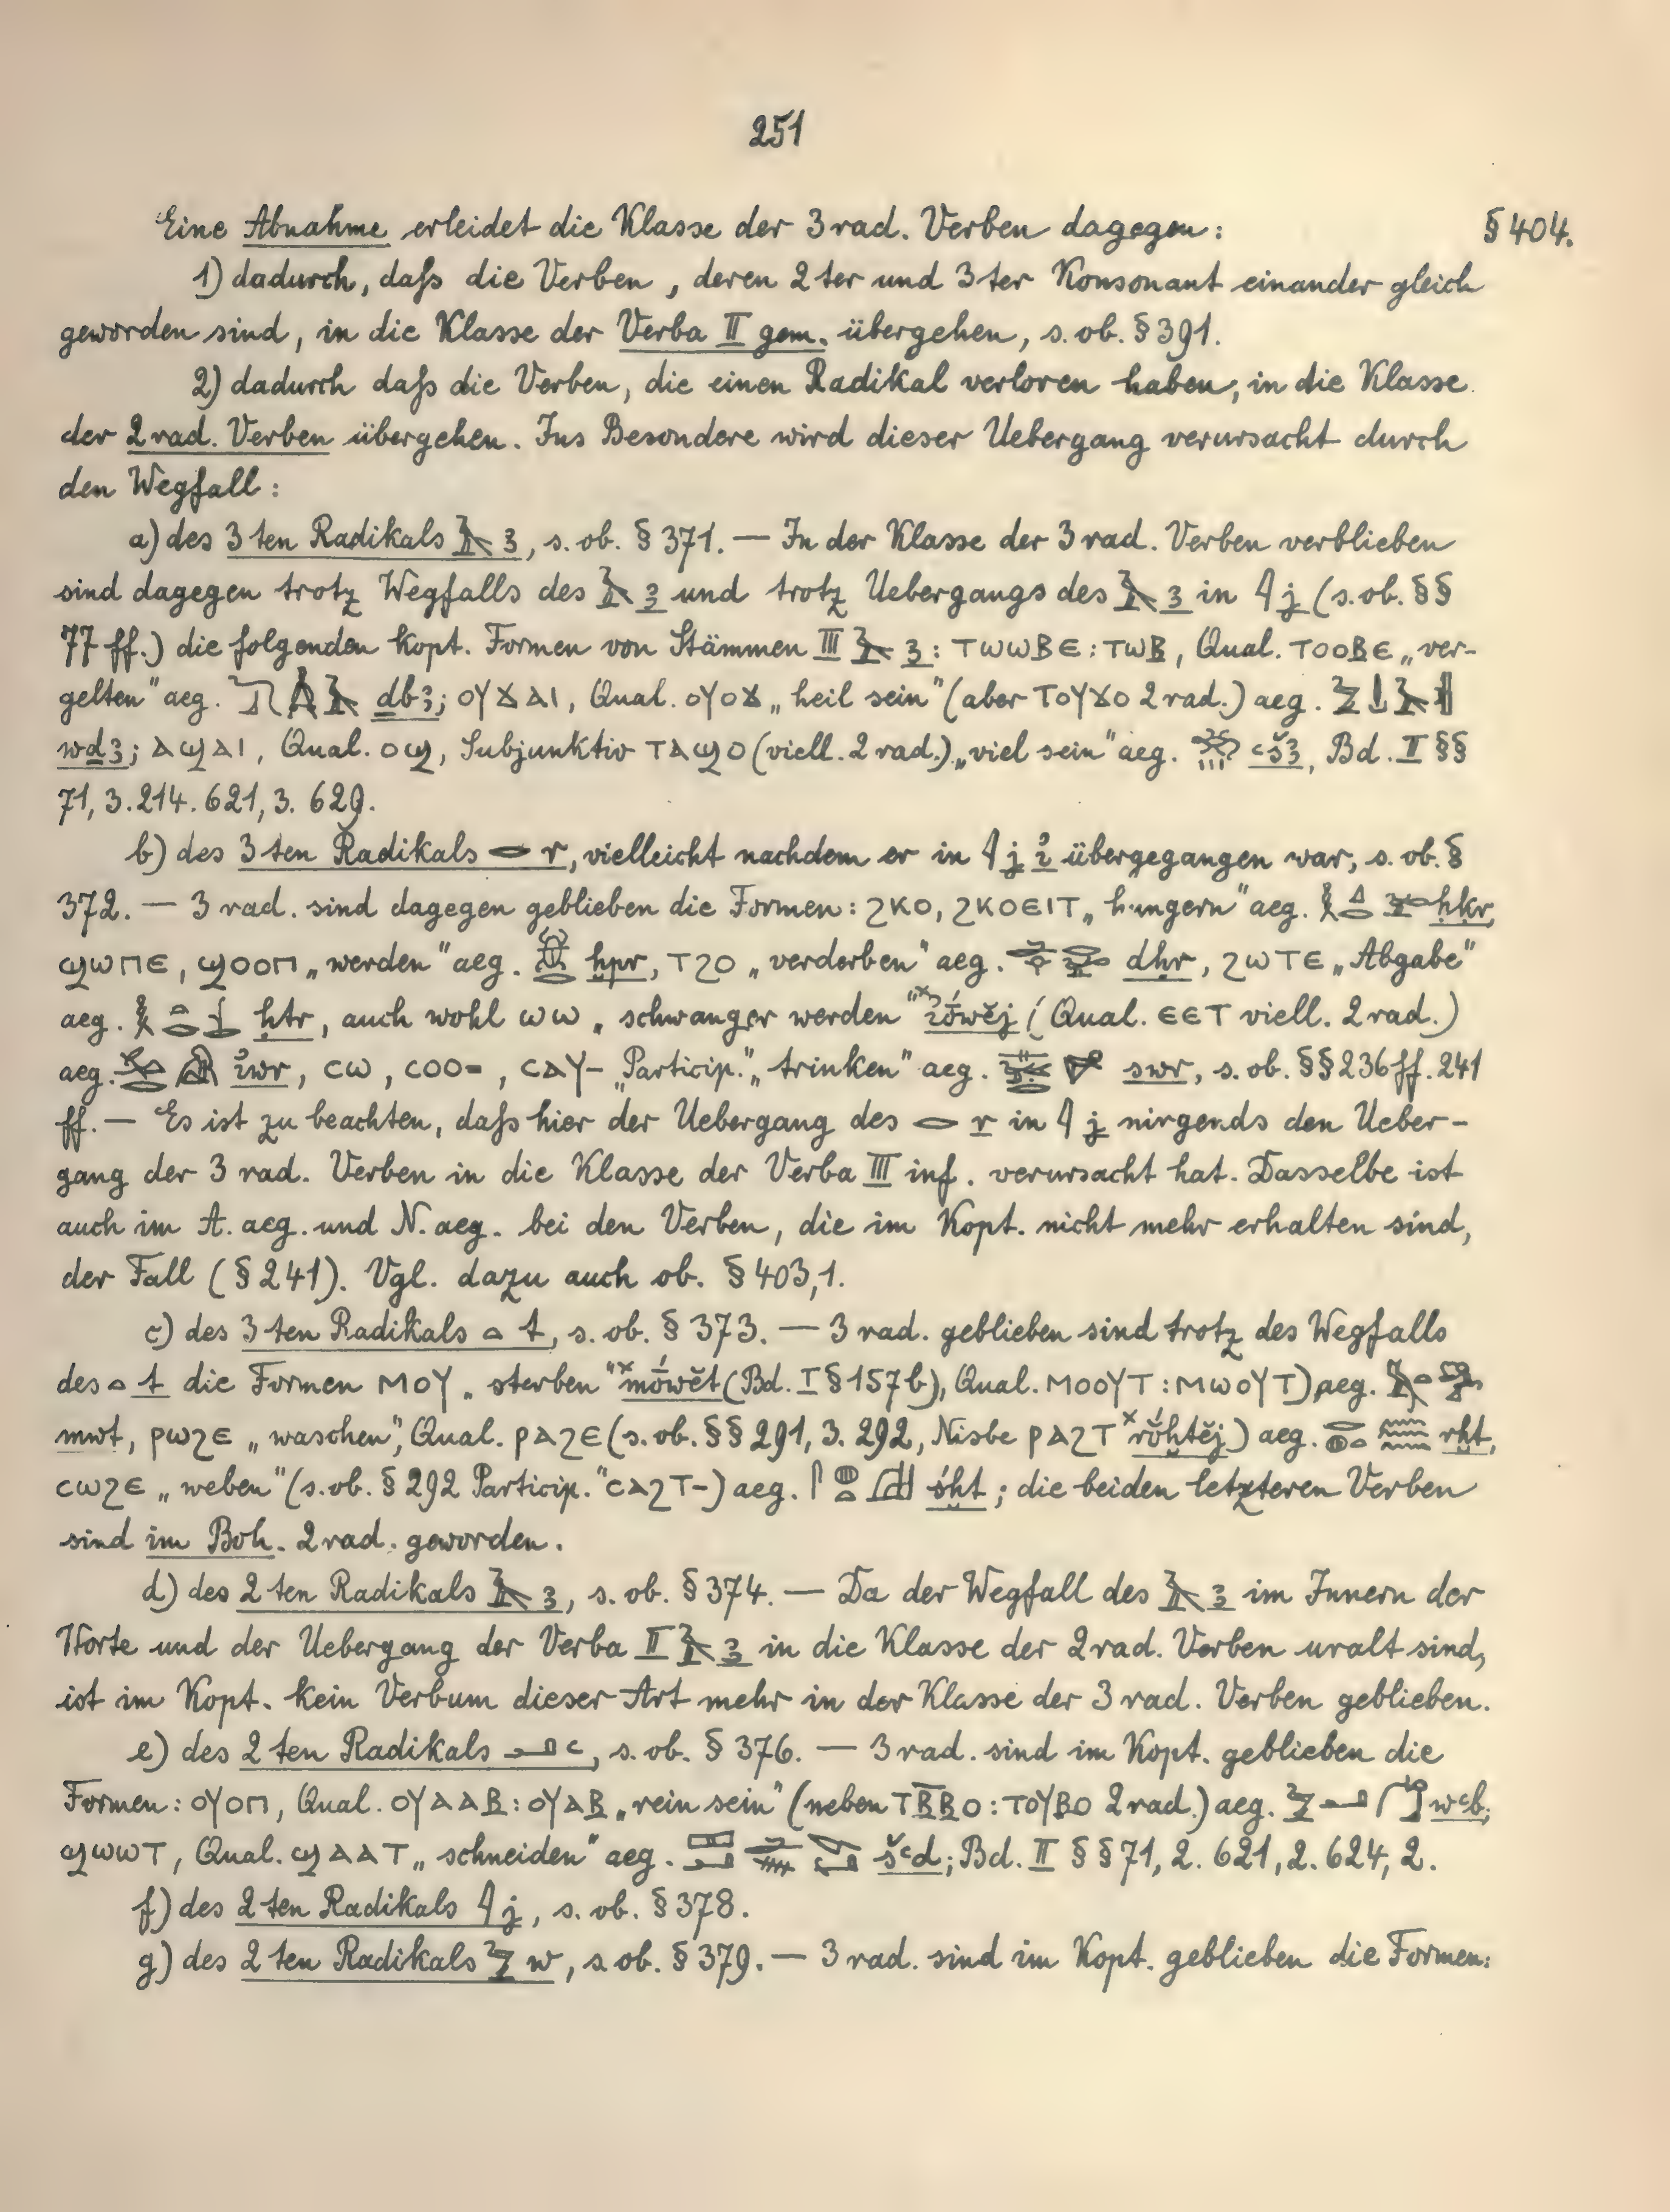 251
Eine Abnahme erleidet die Klasse der 3rad. Verben dagegen: § 404.
1) dadurch, daſs die Verben, deren 2ter und 3ter Konsonant einander gleich
geworden sind, in die Klasse der Verba II gem. übergehen, s. ob. § 391.
2) dadurch daſs die Verben, die einen Radikal verloren haben, in die Klasse
der 2rad. Verben übergehen. Ins Besondere wird dieser Uebergang verursacht durch
den Wegfall:
a) des 3ten Radikals 𓄿 ꜣ, s. ob. § 371. — In der Klasse der 3rad. Verben verblieben
sind dagegen trotz Wegfalls des 𓄿 ꜣ und trotz Uebergangs des 𓄿 ꜣ in 𓇋 j (s. ob. §§
77 ff.) die folgenden kopt. Formen von Stämmen III 𓄿 ꜣ: ⲧⲱⲱⲃⲉ : ⲧⲱⲃ, Qual. ⲧⲟⲟⲃⲉ „ver-
gelten" aeg. dbꜣ; ⲟⲩϫⲁⲓ, Qual. ⲟⲩⲟϫ „heil sein" (aber ⲧⲟⲩϫⲟ 2rad.) aeg.
wḏꜣ; ⲁϣⲁⲓ, Qual. ⲟϣ, Subjunktiv ⲧⲁϣⲟ (viell. 2rad.) „viel sein" aeg. ꜥšꜣ, Bd. II §§
71, 3. 214. 621, 3. 629.
b) des 3ten Radikals 𓂋 r, vielleicht nachdem er in 𓇋 j ꞽ übergegangen war, s. ob. §
372. — 3rad. sind dagegen geblieben die Formen: ϩⲕⲟ, ϩⲕⲟⲉⲓⲧ „hungern" aeg. ḥkr,
ϣⲱⲡⲉ, ϣⲟⲟⲡ „werden" aeg. ḫpr, ⲧϩⲟ „verderben" aeg. dḥr, ϩⲱⲧⲉ „Abgabe"
aeg. ḥtr, auch wohl ⲱⲱ „schwanger werden" ˣꞽṓwĕj (Qual. ⲉⲉⲧ viell. 2rad.)
aeg. ꞽwr, ⲥⲱ, ⲥⲟⲟ⸗, ⲥⲁⲩ- „Particip." „trinken" aeg. swr, s. ob. §§ 236 ff. 241
ff. — Es ist zu beachten, daſs hier der Uebergang des 𓂋 r in 𓇋 j nirgends den Ueber-
gang der 3rad. Verben in die Klasse der Verba III inf. verursacht hat. Dasselbe ist
auch im A. aeg. und N. aeg. bei den Verben, die im Kopt. nicht mehr erhalten sind,
der Fall (§ 241). Vgl. dazu auch ob. § 403, 1.
c) des 3ten Radikals 𓏏 t, s. ob. § 373. — 3rad. geblieben sind trotz des Wegfalls
des 𓏏 t die Formen ⲙⲟⲩ „sterben" ˣmṓwĕt (Bd. I § 157b), Qual. ⲙⲟⲟⲩⲧ : ⲙⲱⲟⲩⲧ) aeg.
mwt, ⲣⲱϩⲉ „waschen", Qual. ⲣⲁϩⲉ (s. ob. §§ 291, 3. 292, Nisbe ⲣⲁϩⲧ ˣrŏ́ḫtĕj) aeg. rḫt,
ⲥⲱϩⲉ „weben" (s. ob. § 292 Particip." ⲥⲁϩⲧ-) aeg. śḫt; die beiden letzteren Verben
sind im Boh. 2rad. geworden.
d) des 2ten Radikals 𓄿 ꜣ, s. ob. § 374. — Da der Wegfall des 𓄿 ꜣ im Innern der
Worte und der Uebergang der Verba II 𓄿 ꜣ in die Klasse der 2rad. Verben uralt sind,
ist im Kopt. kein Verbum dieser Art mehr in der Klasse der 3rad. Verben geblieben.
e) des 2ten Radikals 𓂝 ꜥ, s. ob. § 376. — 3rad. sind im Kopt. geblieben die
Formen: ⲟⲩⲟⲡ, Qual. ⲟⲩⲁⲁⲃ : ⲟⲩⲁⲃ „rein sein" (neben ⲧⲃⲃⲟ : ⲧⲟⲩⲃⲟ 2rad.) aeg. wꜥb;
ϣⲱⲱⲧ, Qual. ϣⲁⲁⲧ „schneiden" aeg. šꜥd; Bd. II §§ 71, 2. 621, 2. 624, 2.
f) des 2ten Radikals 𓇋 j, s. ob. § 378.
g) des 2ten Radikals 𓅱 w, s. ob. § 379. — 3rad. sind im Kopt. geblieben die Formen: